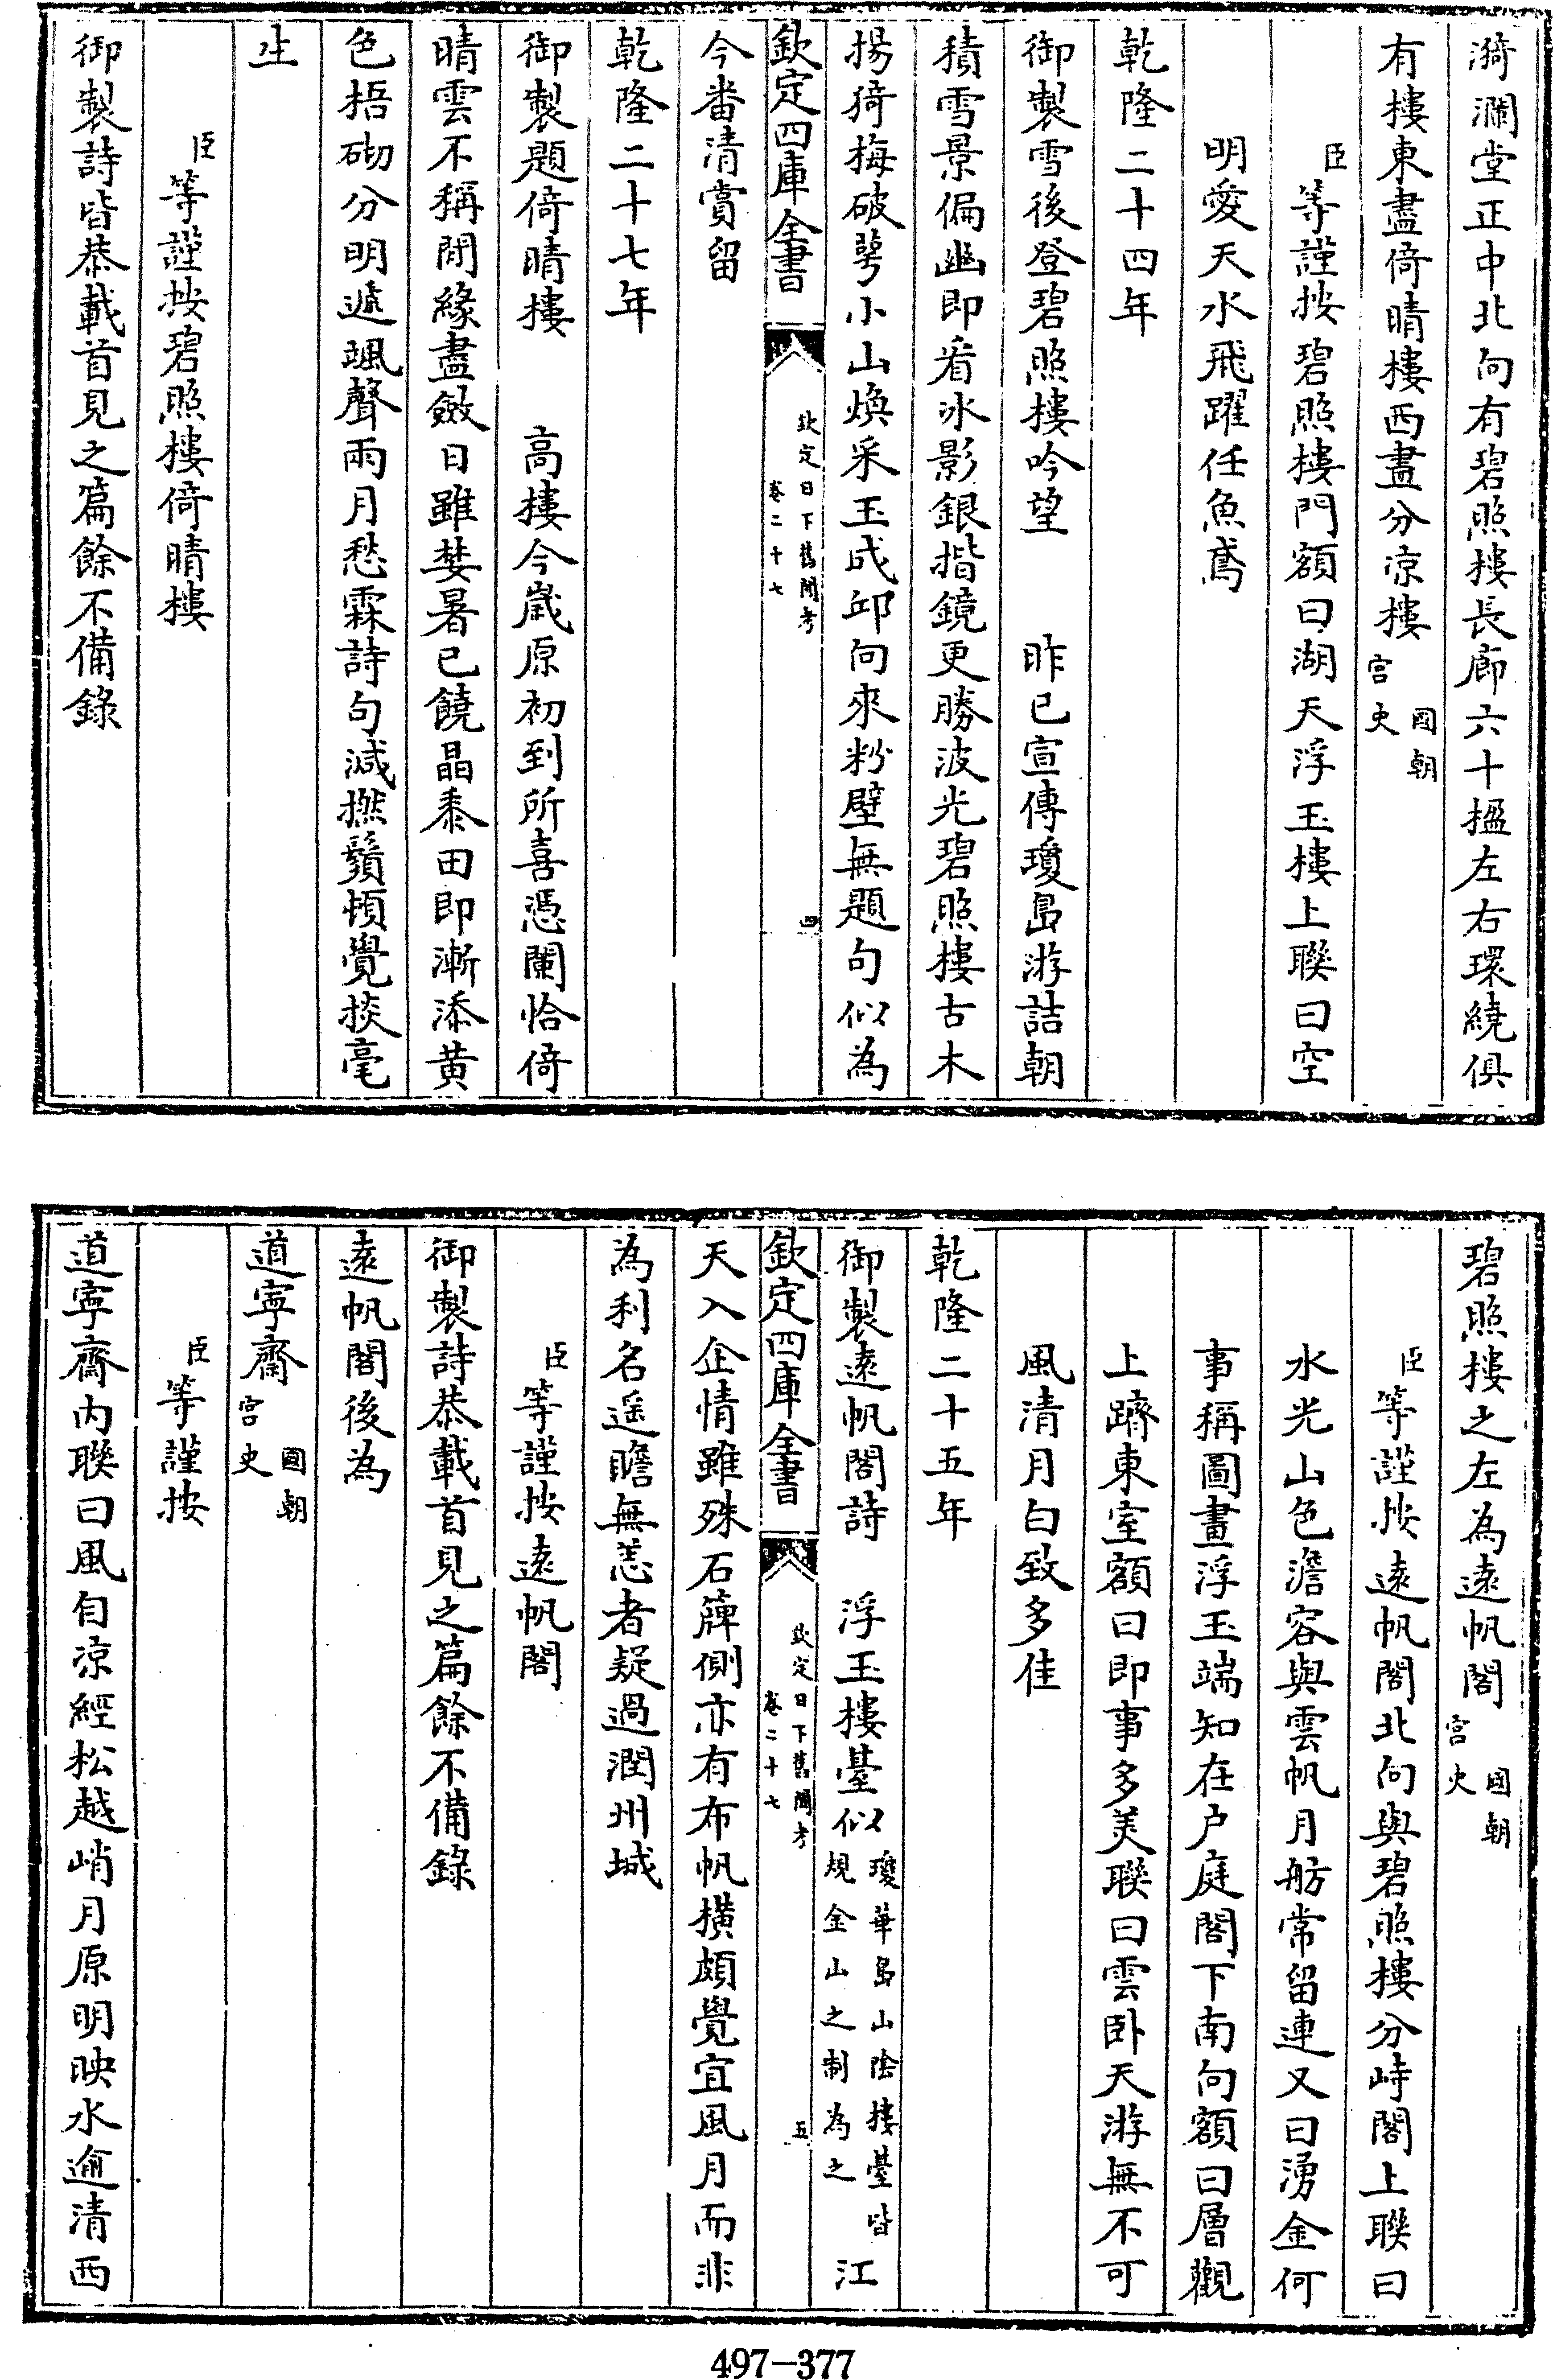 漪瀾堂正中北向有碧照樓長廊六十楹左右環繞俱
有樓東盡倚晴樓西盡分涼樓國朝宮史
臣等謹按碧照樓門額曰湖天浮玉樓上聯曰空
明愛天水飛躍任魚鳶
乾隆二十四年
御製雪後登碧照樓吟望 昨已宣傳瓊島游詰朝
積雪景偏幽即看冰影銀揩鏡更勝波光碧照樓古木
揚猗梅破萼小山煥采玉成邱向來粉壁無題句似為
欽定四庫全書 欽定日下舊聞考 卷二十七 四
今番清賞留
乾隆二十七年
御製題倚晴樓 高樓今歲原初到所喜憑闌恰倚
晴雲不稱閒緣盡斂日雖婪暑已饒晶黍田即漸添黄
色梧砌分明遞颯聲兩月愁霖詩句減撚鬚頓覺掞毫
生
臣等謹按碧照樓倚晴樓
御製詩皆恭載首見之篇餘不備錄
碧照樓之左為遠帆閣國朝宮史
臣等謹按遠帆閣北向與碧照樓分峙閣上聯曰
水光山色澹容與雲帆月舫常留連又曰湧金何
事稱圖畫浮玉端知在户庭閣下南向額曰層觀
上躋東室額曰即事多美聯曰雲卧天游無不可
風清月白致多佳
乾隆二十五年
御製遠帆閣詩 浮玉樓臺似瓊華島山陰樓臺皆規金山之制為之江
欽定四庫全書 欽定日下舊聞考 卷二十七 五
天入企情雖殊石簰側亦有布帆橫頗覺宜風月而非
為利名遥瞻無恙者疑過潤州城
臣等謹按遠帆閣
御製詩恭載首見之篇餘不備錄
遠帆閣後為
道寧齋國朝宮史
臣等謹按
道寧齋内聯曰風自涼經松越峭月原明映水逾清西
497-377